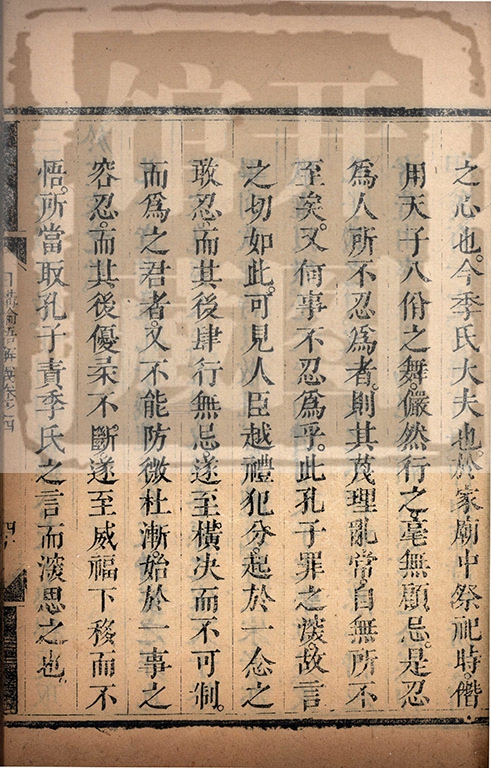 之心也。今季氏大夫也。於家廟中祭祀時。僭
用天子八佾之舞。儼然行之。毫無顧忌。是忍
爲人所不忍爲者。則其蔑理亂常。自無所不
至矣。又何事不忍爲乎。此孔子罪之深。故言
之切如此。可見人臣越禮犯分。起於一念之
敢忍。而其後肆行無忌。遂至橫決而不可制。
而爲之君者。又不能防微杜漸。始於一事之
容忍。而其後優柔不斷。遂至威福下移而不
悟。所當取孔子責季氏之言而深思之也。
日講四書解義卷四